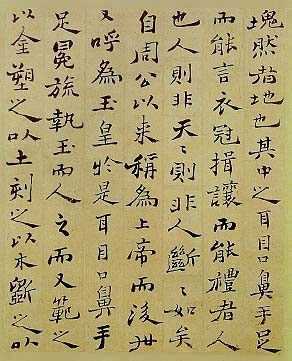 塊然者地也其中之耳目口鼻手足
而能言衣冠揖讓而能禮者人
也人則非天〻則非人斷〻如矣
自周公以來稱為上帝而後世
又呼為玉皇於是耳目口鼻手
足冕旒執玉而人之而又範之
以金塑之以土刻之以木斲之以